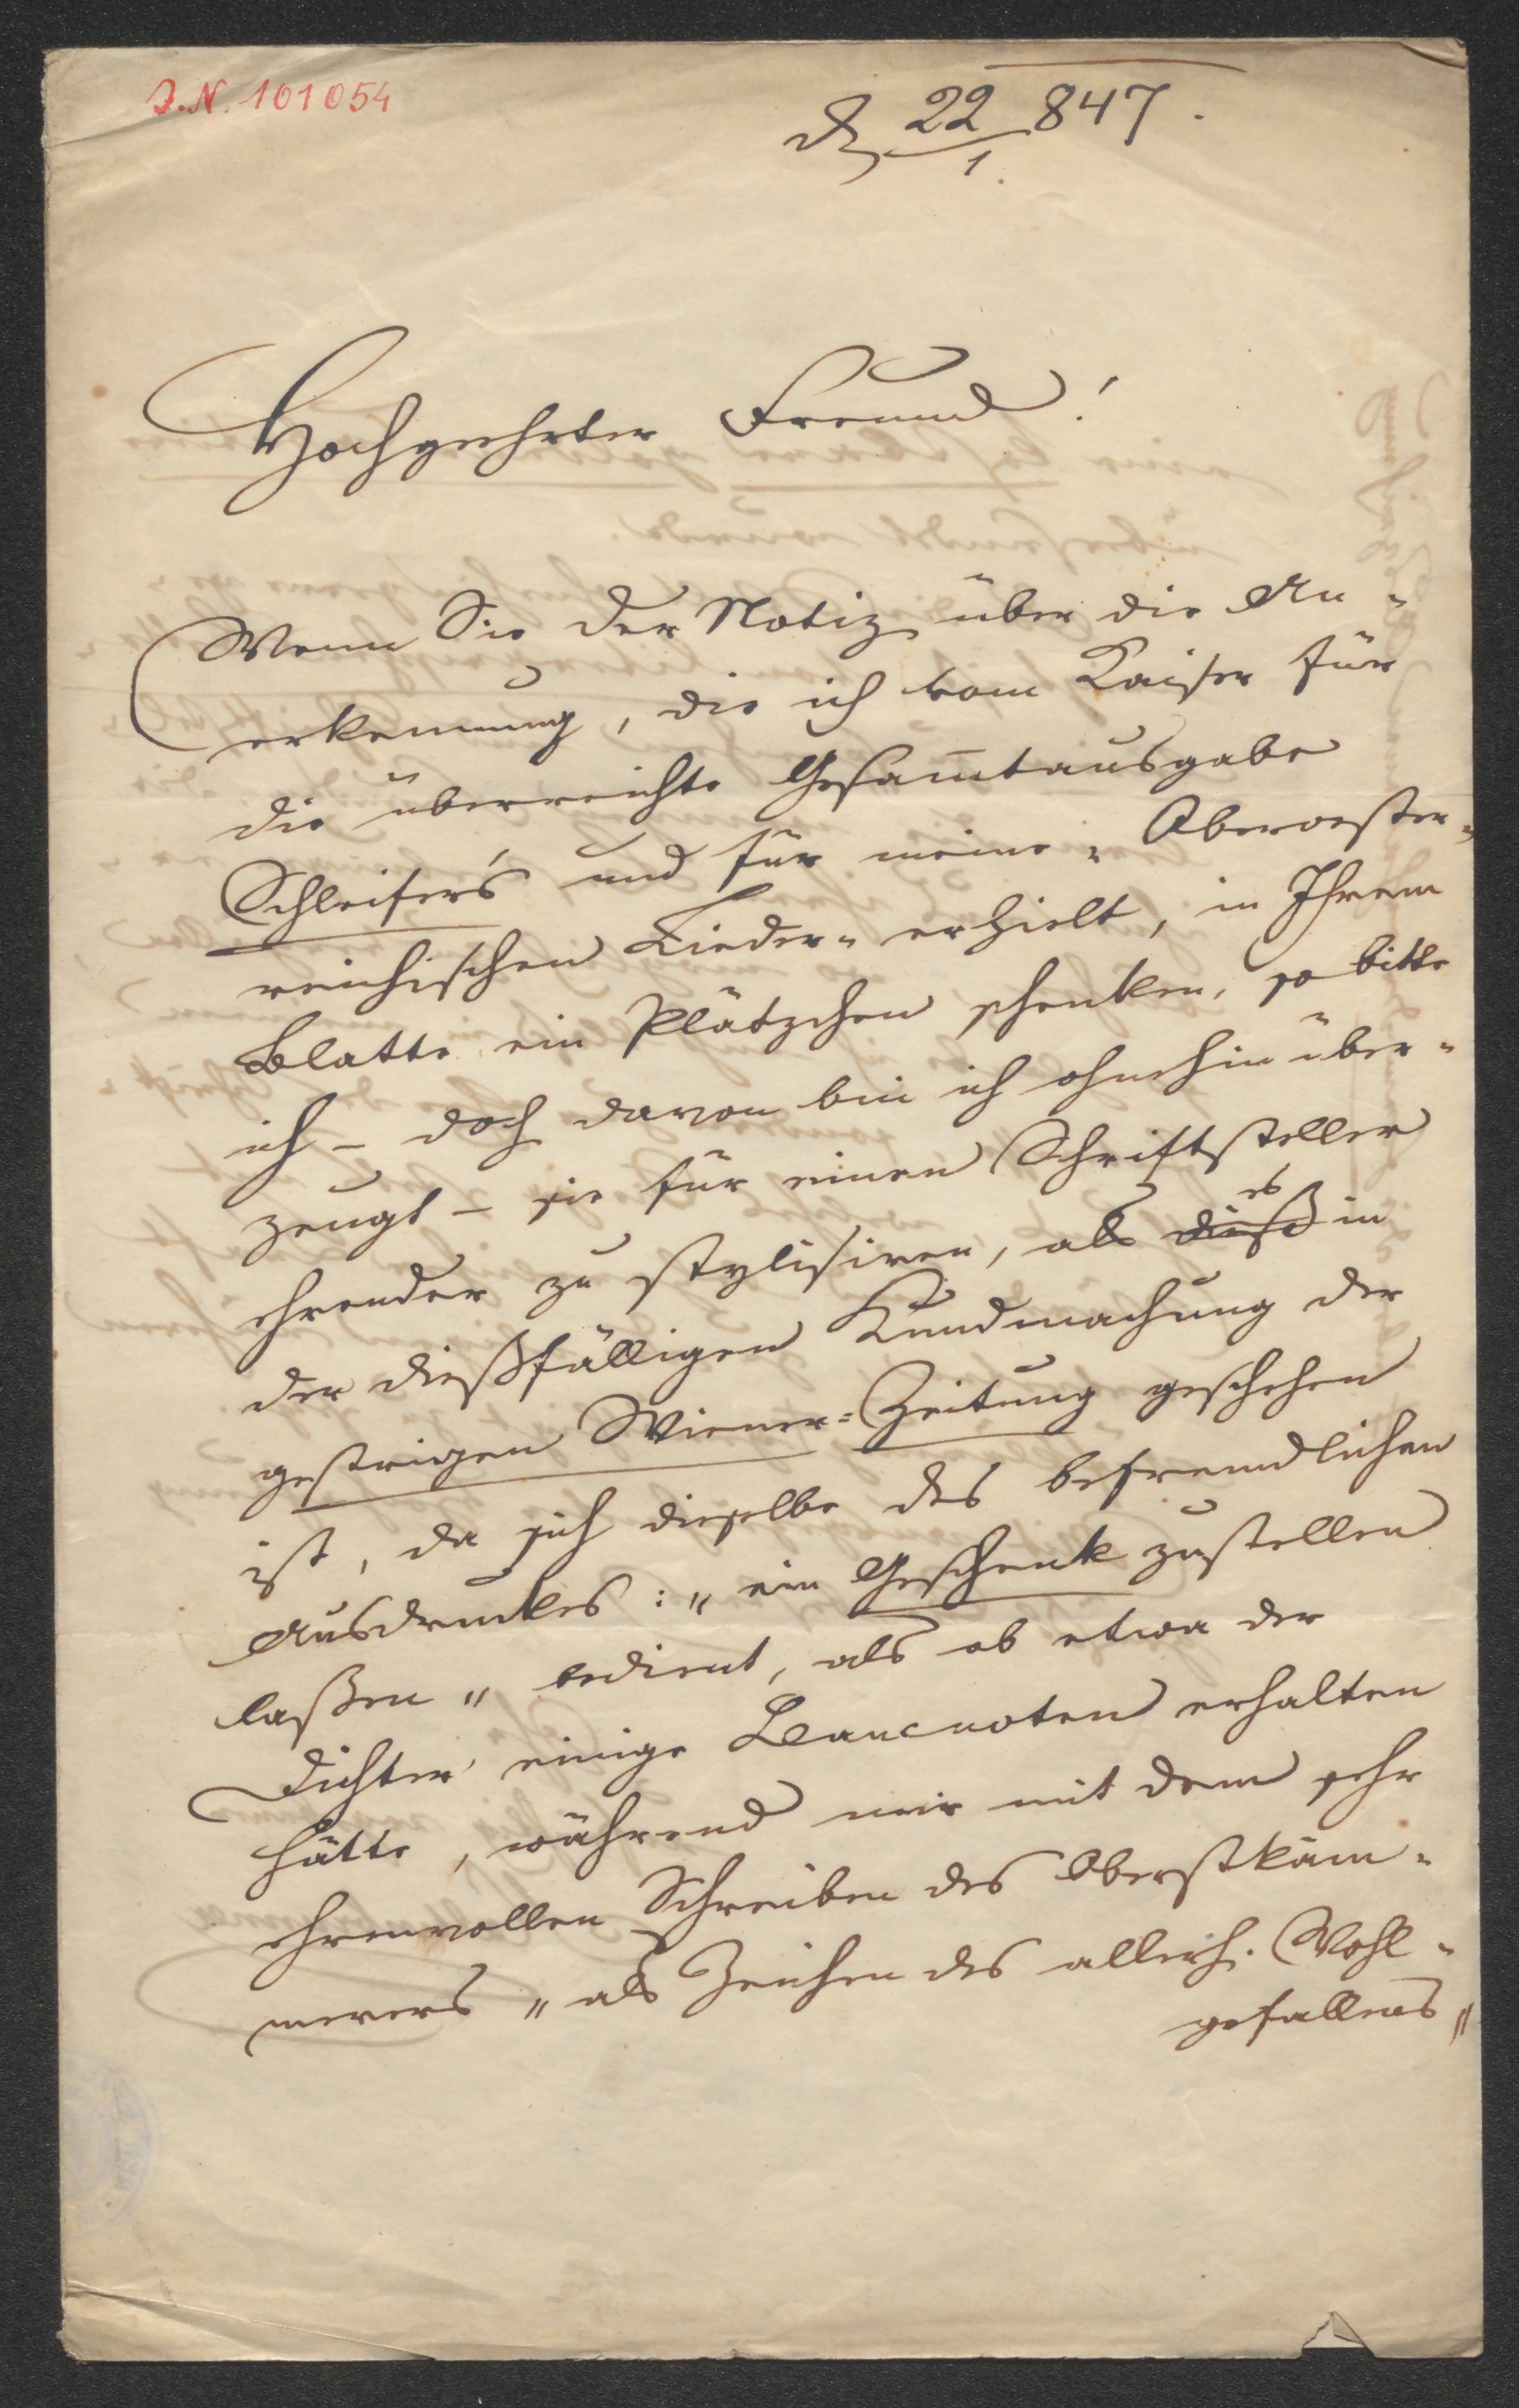 I.N. 101054
d 22/1 847.
Hochgeehrter Freund!
Wenn Sie der Notiz über die An-
erkennung, die ich vom Kaiser für
die überreichte Gesam̅tausgabe
Schleifer's und für meine „Oberoester-
reichischen Lieder" erhielt, in Ihrem
Blatte ein Plätzchen schenken, so bitte
ich – doch davon bin ich ohnehin über-
zeugt – sie für einen Schriftsteller
ehrender zu stylisiren, als dieß es in
der dießfälligen Kundmachung der
gestrigen Wiener-Zeitung geschehen
ist, da sich dieselbe des befremdlichen
Ausdruckes: „ein Geschenk zustellen
laßen" bedient, als ob etwa der
Dichter einige Bancnoten erhalten
hätte, während mir mit dem sehr
ehrenvollen Schreiben des Oberstkäm-
merers „als Zeichen des allerh. Wohl-
gefallens"